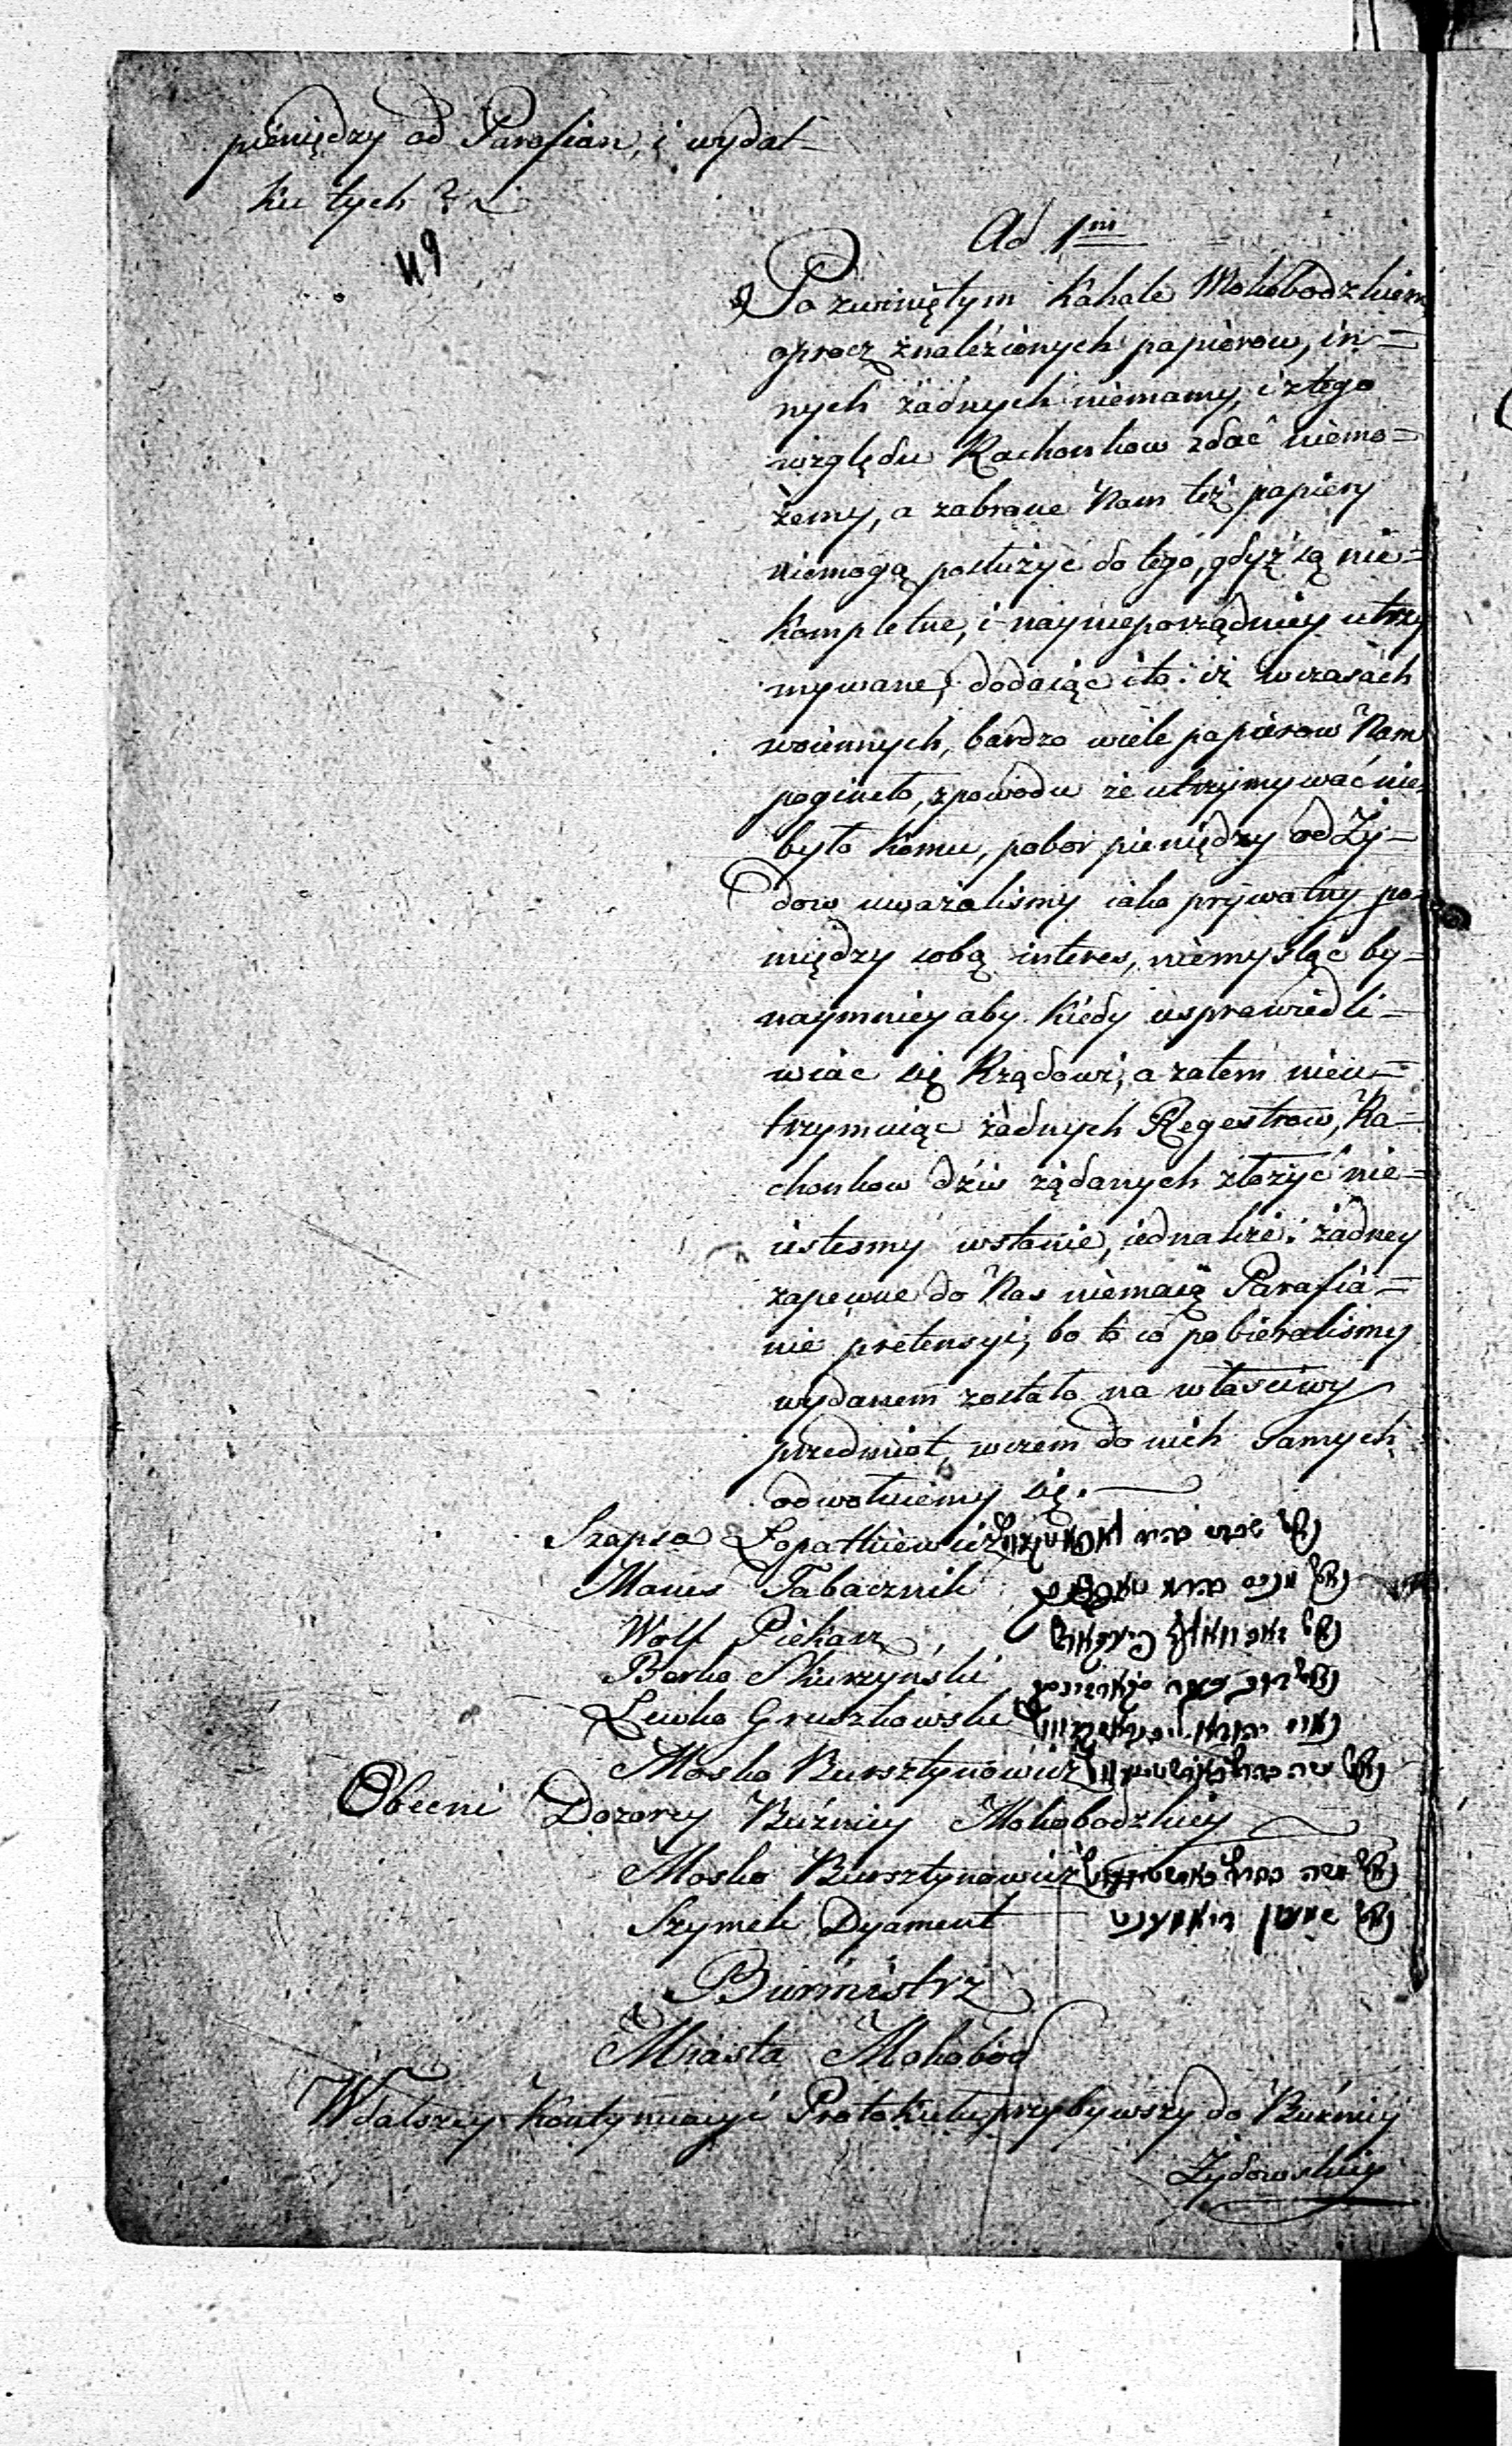 pieniędzy od Parafian, i wydat=
ku tych?
Ad 1<sup>m</sup>
Po zwiniętym Kahale Mokobodzkiem
oprocz znaleźionych papierow, in=
nych żadnych niemamy, i ztego
względu Rachonkow zdać niemo=
żemy, a zabrane Nam też papiery
niemogą posłużyć do tego, gdyż są nie=
kompletne, i naynieporządniey utrzy
mywane, dodaiąc i to: iż wczasach
woiennych, bardzo wiele papierow Nam
pogineło, zpowodu że utrzymywać nie
było komu, pobor pieniędzy od Ży=
dow uważaliśmy iako prywatny po
między sobą interes, niemysląc by=
naymniey aby kiedy usprawiedli=
wiac się Rządowi, a zatem nieu=
trzymuiąc żadnych Regestrow, Ra=
chonkow dźiś żądanych złożyć nie=
iestesmy wstanie, iednakże: żadney
zapewne do Nas niemaią Parafia=
nie pretensyi, bo to co pobieralismy
wydanem zostało na własciwy
przedmiot, wczem do nich Samych
odwołuiemy się.
Szapsa Łopatkiewicz
Manes Tabacznik
Wolf Piekarz
Berko Skurzyński
Lewko Gruszkowski
Mosko Bursztynowicz
Obecni Dozorcy Bużnicy Mokobodzkiey
Mosko Bursztynowicz
Szymek Dyament
Burmistrz
Miasta Mokobod
Wdalszey Kontynuacyi Protokułu przybywszy do Bużnicy
Żydowskiey